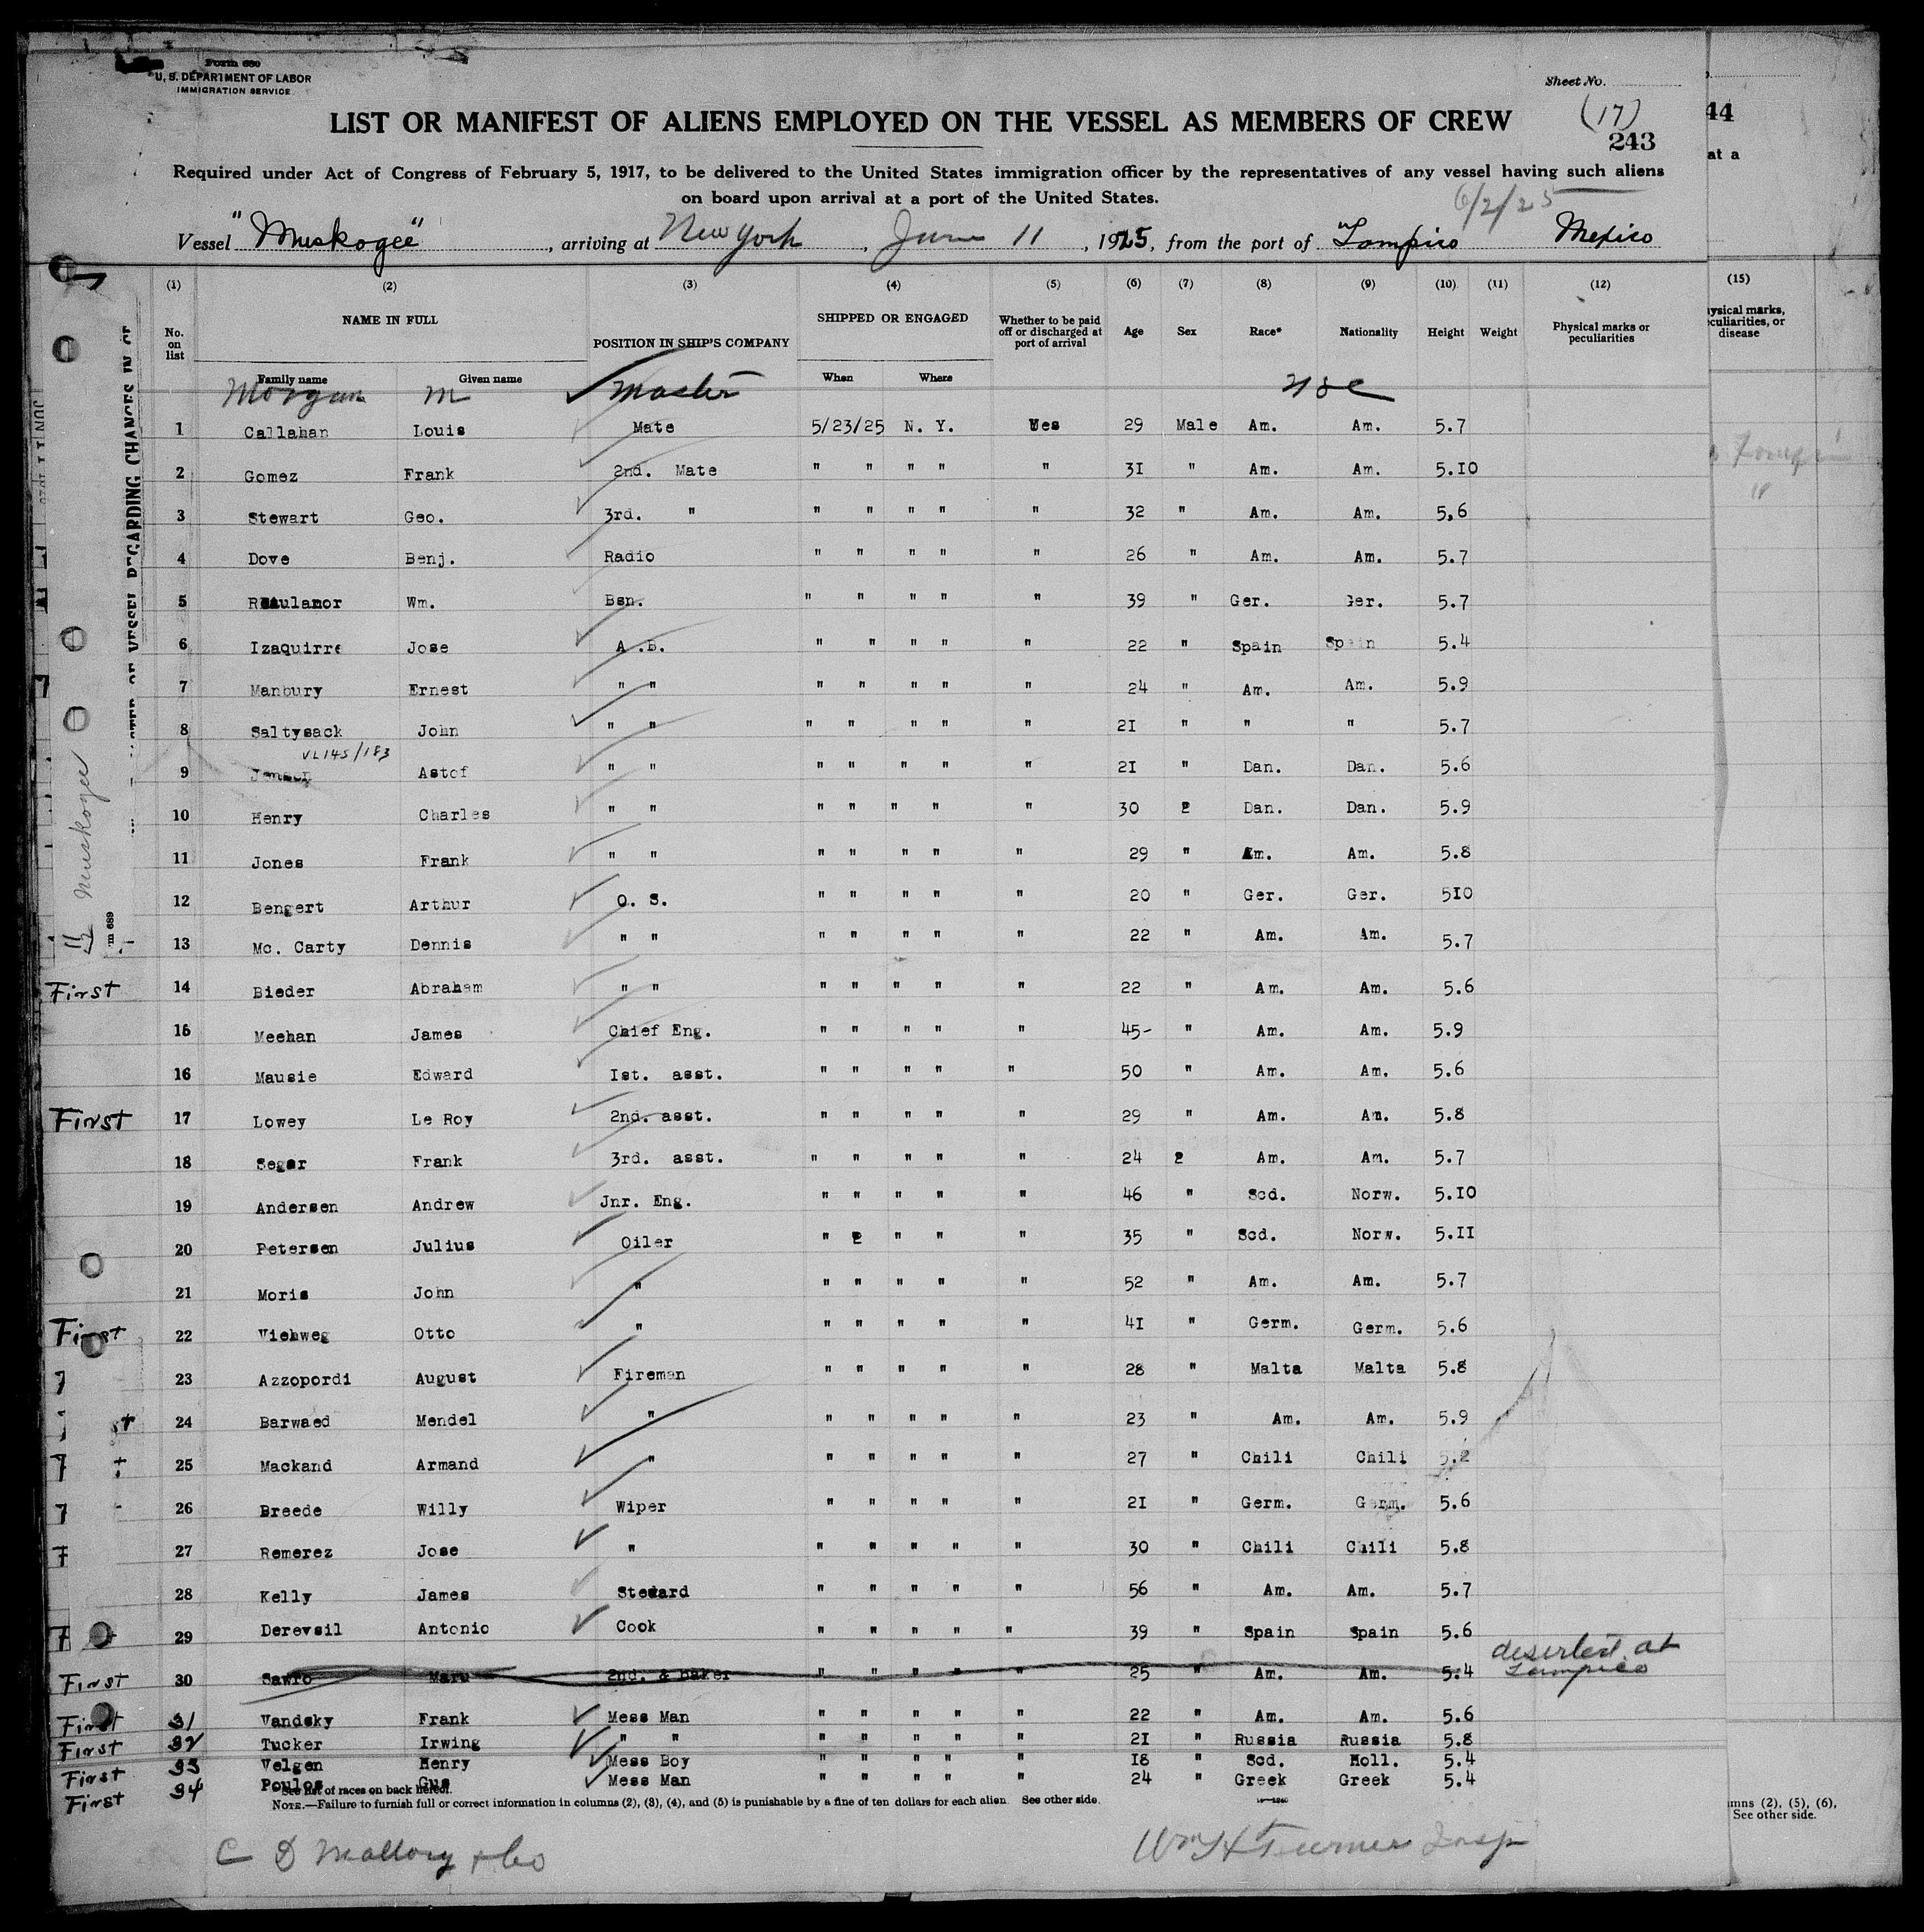 Form 680
U. S. DEPARTMENT OF LABOR
IMMIGRATION SERVICE
Sheet No.
LIST OR MANIFEST OF ALIENS EMPLOYED ON THE VESSEL AS MEMBERS OF CREW
(17)
243
44
Required under Act of Congress of February 5, 1917, to be delivered to the United States immigration officer by the representatives of any vessel having such aliens
at a
on board upon arrival at a port of the United States.
6/2/25
Vessel "Muskogee", arriving at New York, June 11, 1925, from the port of Tampico Mexico
(1) (2) (3) (4) (5) (6) (7) (8) (9) (10) (11) (12) (15)
No. on list NAME IN FULL POSITION IN SHIP'S COMPANY SHIPPED OR ENGAGED Whether to be paid off or discharged at port of arrival Age Sex Race* Nationality Height Weight Physical marks or peculiarities
Family name Given name When Where
Morgan M Master USC
1 Callahan Louis Mate 5/23/25 N. Y. Yes 29 Male Am. Am. 5.7
2 Gomez Frank 2nd. Mate " " " " " 31 " Am. Am. 5.10
3 Stewart Geo. 3rd. " " " " " " 32 " Am. Am. 5,6
4 Dove Benj. Radio " " " " " 26 " Am. Am. 5.7
5 Wm. Bsn. " " " " " 39 " Ger. Ger. 5.7
6 Izaquirre Jose A.B. " " " " " 22 " Spain Spain 5.4
7 Manbury Ernest " " " " " " " 24 " Am. Am. 5.9
8 Saltysack John " " " " " " " 21 " " " 5.7
VL145/183
9 Jensen Astof " " " " " " " 21 " Dan. Dan. 5.6
10 Henry Charles " " " " " " " 30 2 Dan. Dan. 5.9
11 Jones Frank " " " " " " " 29 " Am. Am. 5.8
12 Bengert Arthur O. S. " " " " " 20 " Ger. Ger. 510
13 Mc. Carty Dennis " " " " " " " 22 " Am. Am. 5.7
First 14 Bieder Abraham " " " " " " " 22 " Am. Am. 5.6
15 Meehan James Chief Eng. " " " " " 45- " Am. Am. 5.9
16 Mausie Edward Ist. asst. " " " " " 50 " Am. Am. 5.6
First 17 Lowey Le Roy 2nd. asst. " " " " " 29 " Am. Am. 5.8
18 Seger Frank 3rd. asst. " " " " " 24 2 Am. Am. 5.7
19 Andersen Andrew Jnr. Eng. " " " " " 46 " Scd. Norw. 5.10
20 Petersen Julius Oiler " 2 " " " 35 " Scd. Norw. 5.11
21 Moris John " " " " " " 52 " Am. Am. 5.7
First 22 Viehweg Otto " " " " " " 41 " Germ. Germ. 5.6
23 Azzopordi August Fireman " " " " " 28 " Malta Malta 5.8
24 Barwaed Mendel " " " " " " 23 " Am. Am. 5.9
25 Mackand Armand " " " " " " 27 " Chili Chili 5.2
26 Breede Willy Wiper " " " " " 21 " Germ. Germ. 5.6
27 Remerez Jose " " " " " " 30 " Chili Chili 5.8
28 Kelly James Steward " " " " " 56 " Am. Am. 5.7
29 Derevsil Antonio Cook " " " " " 39 " Spain Spain 5.6
First 30 Sawro Maru 2nd. & baker " " " " " 25 " Am. Am. 5.4 deserted at Tampico
First 31 Vandsky Frank Mess Man " " " " " 22 " Am. Am. 5.6
First 32 Tucker Irwing " " " " " " " 21 " Russia Russia 5.8
First 33 Velgen Henry Mess Boy " " " " " 18 " Scd. Holl. 5.4
First 34 Poulos Gus Mess Man " " " " " 24 " Greek Greek 5.4
See list of races on back hereof.
NOTE.—Failure to furnish full or correct information in columns (2), (3), (4), and (5) is punishable by a fine of ten dollars for each alien. See other side.
(2), (5), (6),
See other side.
C D Mallory & Co
Wm H Turner Insp
Muskogee